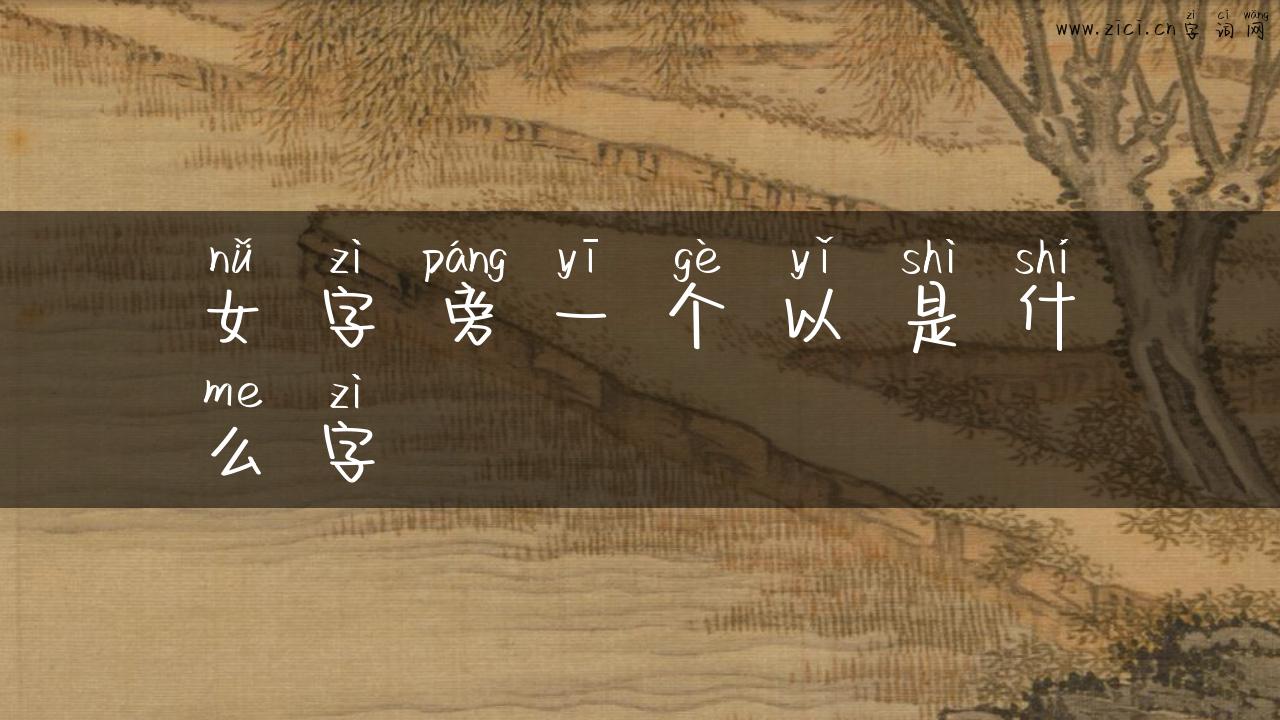 zì cí wǎng
www.zici.cn字词网
nǚ zì páng yī gè yǐ shì shí
女字旁一个以是什
me zì
么字